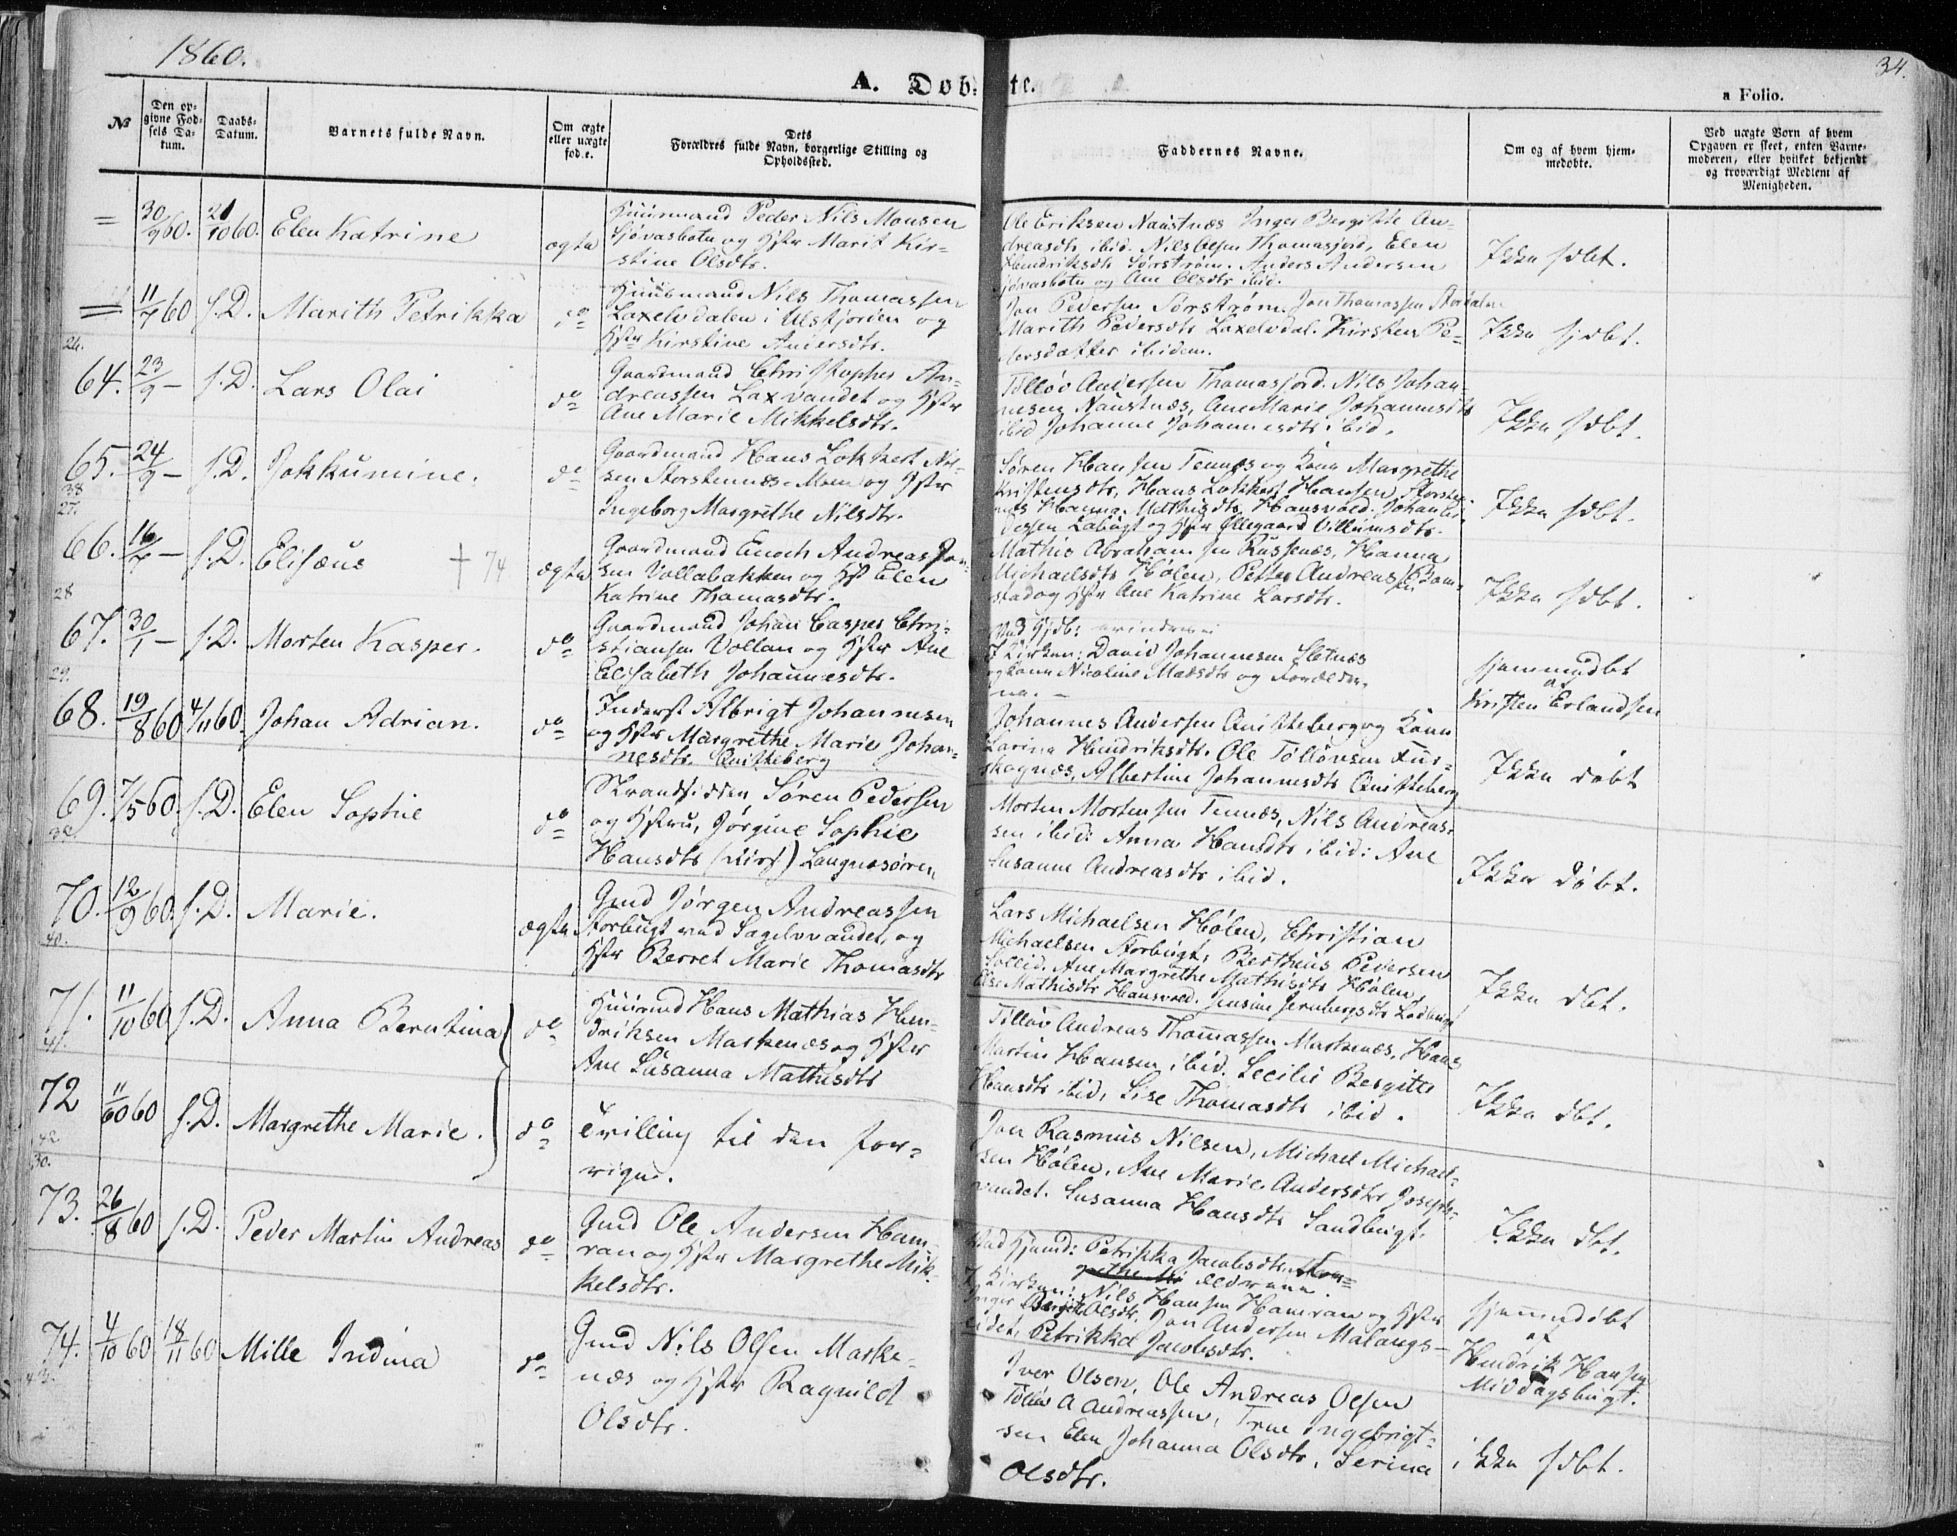 1860.
34.
A. Døbte.
a Folio.
No
Den op-
givne Fød-
sels Da-
tum.
Daabs-
Datum.
Barnets fulde Navn.
Om ægte
eller uægte
fød.e.
Dets
Forældres fulde Navn, borgerlige Stilling og
Opholdssted.
Faddernes Navne.
Om og af hvem hjem-
medøbte.
Ved uægte Børn af hvem
Opgaven er skeet, enten Barne-
moderen, eller hvilket bekjendt
og troværdigt Medlem af
Menigheden.
= 30/9 60. 21/10 60. Elen Katrine ægte
Huusmand Peder Nils Monsen
Sjøvasbotn og Hstr Marit Kir-
stine Olsdtr.
Ole Eriksen Naustnæs Inger Bergitte An-
dreasdtr ibid. Nils Olsen Thomasjord, Elen
Hendriksdtr Sørstrøm. Anders Andersen
Sjøvasbotn og Ane Olsdtr ibid.
Ikke hdbt.
= 11/7 60 s.D. Marith Petrikka do
Huusmand Nils Thomassen
Laxelvdalen i Ulsfjorden og
Hstr Kirstine Andersdtr.
Jon Pedersen Sørstrøm. Jon Thomassen Stordalen
Marith Pedersdtr Laxelvdal. Kirsten Pe-
dersdatter ibidem.
Ikke hjdbt.
26.
64. 23/9 — s.D. Lars Olai do
Gaardmand Christopher An-
dreassen Laxvandet og Hstr
Ane Marie Mikkelsdtr.
Tølløv Andersen Thomasjord. Nils Johan-
nesen Naustnæs, Ane Marie Johannesdtr
ibid Johanne Johannesdtr ibid.
Ikke hdbt.
65. 24/9 — s.D. Jokkumine. do
Gaardmand Hans Løkkert Nil-
sen Storstennæs-Moen og Hstr
Ingeborg Margrethe Nilsdtr.
Søren Hansen Tennæs og Kone Margrethe
Kristensdtr, Hans Løkkert Hansen Storsten-
næs Hanna Mathisdtr Hansvold. Johan
Labugt og Hstr Ellegaard Villumsdtr.
Ikke hdbt.
38
27.
66. 16/7 — s.D. Elisæus † 74 ægte
Gaardmand Enoch Andreas Jon-
sen Vollabakken og Hst Elen
Katrine Thomasdtr.
Mathis Abrahamsen Russenæs, Hanna
Michaelsdtr Hølen, Petter Andreassen Bom-
stad og Hstr Ane Katrine Larsdtr.
Ikke hdbt.
28
67. 30/1 — s.D. Morten Kasper. do
Gaardmand Johan Casper Chri-
stiansen Vollan og Hstr Ane
Elisabeth Johannesdtr.
Ved Hjdb:
I Kirken: David Johannesen Sletnæs
og Kone Nicoline Madsdtr og Forældre-
ne. —
hjemmedbt
af
Kristen Erlandsen
29.
68. 19/8 60 4/11 60. Johan Adrian. do
Inderst Albrigt Johannesen
og Hstr Margrethe Marie Johan-
nesdtr. Qvitteberg
Johannes Andersen Qvitteberg og Kone
Karina Hendriksdtr. Ole Tølløvsen Fur-
skognæs, Albertine Johannesdtr Qvitteberg
Ikke døbt
69. 7/5 60. s.D. Elen Sophie do
Strandsidder Søren Pedersen
og Hstru, Jørgine Sophie
Hansdtr Langnæsøren
Morten Mortensen Tennæs, Nils Andreas-
sen ibid: Anna Hansdtr ibid: Ane
Susanne Andreasdtr ibid.
Ikke døbt.
70. 12/9 60. s.D. Marie. ægte
Gmd Jørgen Andreassen
Storbugt ved Sagelvvandet, og
Hstr Berret Marie Thomasdtr
Lars Michaelsen Hølen, Christian
Michaelsen Storbugt, Bertheus Pedersen
Sollid. Ane Margrethe Mathisdtr Hølen,
Else Mathisdtr Hansvold. Jensine Jernbergsdtr
Ikke dbt.
40.
71. 11/10 60 s.D. Anna Berntina do
Huusmd Hans Mathias Hen-
driksen Maskenæs og Hstr
Ane Susanna Mathisdtr
Tølløv Andreas Thomassen Maskenæs, Hans
Martin Hansen ibid. Secilie Bergitte
Hansdtr ibid, Lise Thomasdtr ibid.
Ikke dbt.
41.
72 11/10 60 s.D. Margrethe Marie. do
Tvilling til den for-
rige.
Jon Rasmus Nilsen, Michael Michael-
sen Hølen, Ane Marie Andersdtr Joseph-
vandet. Susanna Hansdtr Sandbugt.
Ikke dbt.
42
30.
73. 26/8 60 s.D. Peder Martin Andreas do
Gmd Ole Andersen Ham-
ran og Hstr Margrethe Mik-
kelsdtr.
Ved Hjemd: Petrikka Jacobsdtr
I Kirken: Nils Hansen Hamran og Hstr
Inger Bergitte Olsdtr. Jon Andersen Malangs-
eidet, Petrikka Jacobsdtr.
hjemmedøbt
af
Hendrik Hansen
Middagsbugt.
74. 4/10 60 18/11 60 Mille Indina do
Gmd Nils Olsen Maske-
næs og Hstr Ragnild
Olsdtr.
Iver Olsen, Ole Andreas Olsen
Tølløv A Andreassen, Trine Ingebrigt-
sen Elen Johanna Olsdtr, Serina
Olsdtr.
ikke hdbt.